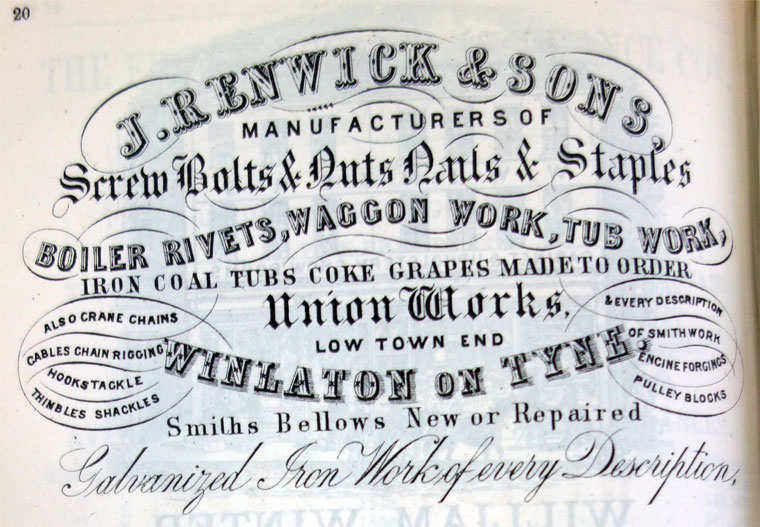 20
J. RENWICK & SONS,
MANUFACTURERS OF
Screw Bolts & Nuts Nails & Staples
BOILER RIVETS, WAGGON WORK, TUB WORK,
IRON COAL TUBS COKE GRAPES MADE TO ORDER
Union Works,
LOW TOWN END
WINLATON ON TYNE.
ALSO CRANE CHAINS
CABLES CHAIN RIGGING
HOOKS TACKLE
THIMBLES SHACKLES
& EVERY DESCRIPTION
OF SMITHWORK
ENGINE FORGINGS
PULLEY BLOCKS
Smiths Bellows New or Repaired
Galvanized Iron Work of every Description,
WILLIAM WINTER